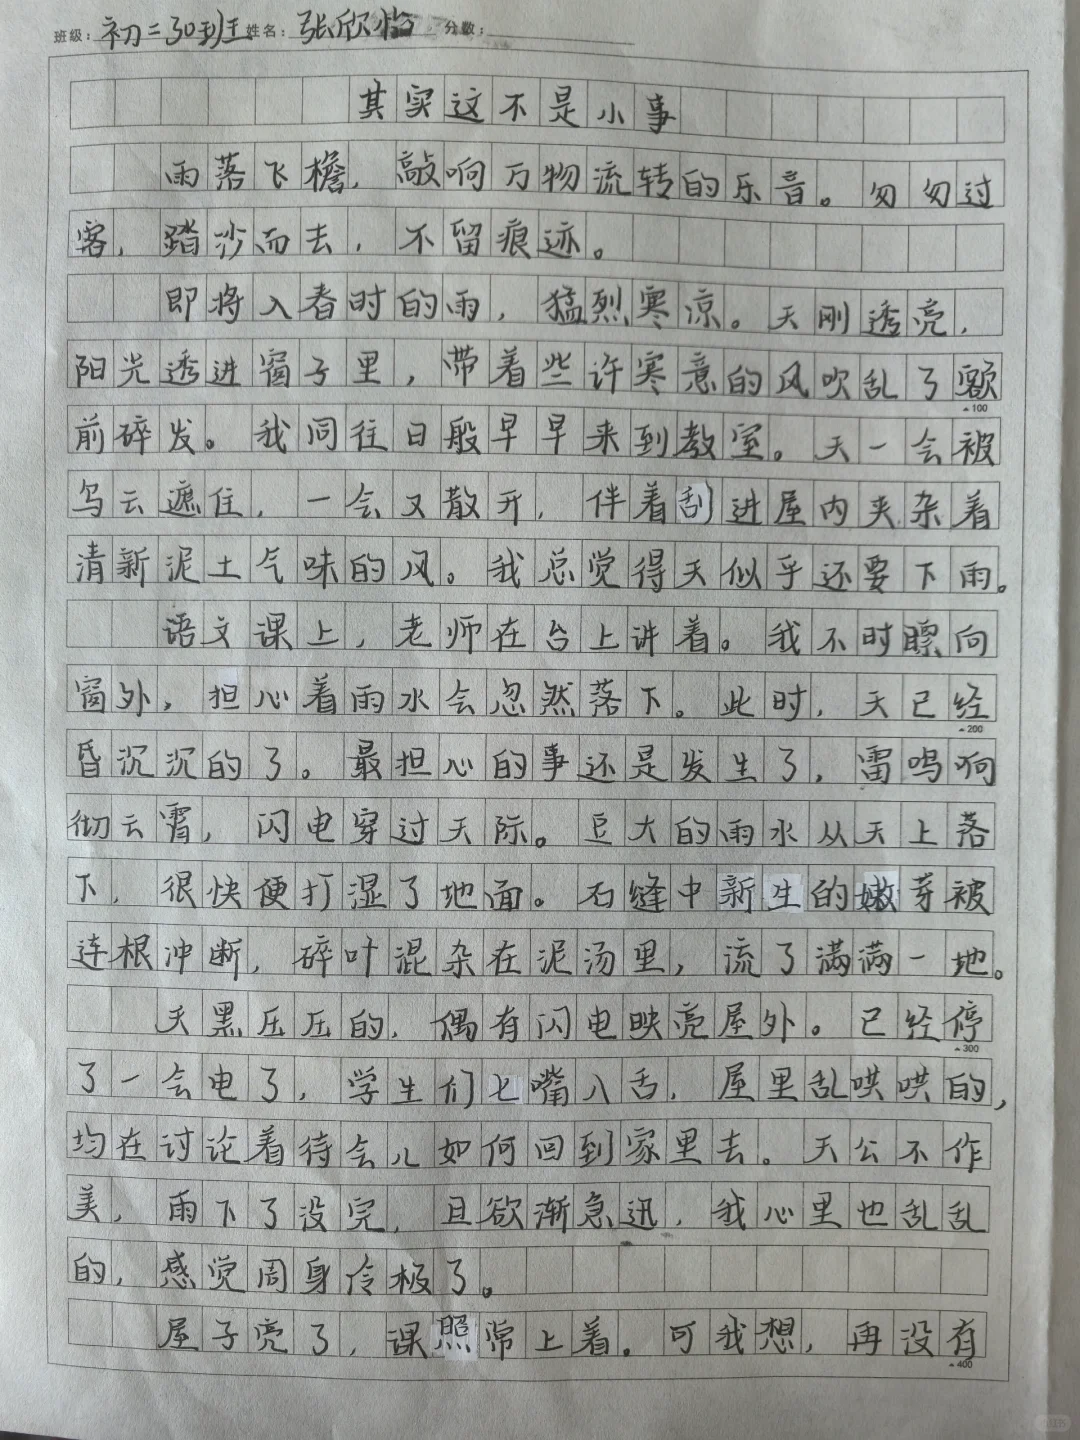 班级：初二30班 姓名：张欣怡 分数：
其实这不是小事
雨落飞檐，敲响万物流转的乐音。匆匆过
客，踏沙而去，不留痕迹。
即将入春时的雨，猛烈寒凉。天刚透亮，
阳光透进窗子里，带着些许寒意的风吹乱了额
▲100
前碎发。我同往日般早早来到教室。天一会被
乌云遮住，一会又散开，伴着刮进屋内夹杂着
清新泥土气味的风。我总觉得天似乎还要下雨。
语文课上，老师在台上讲着。我不时瞟向
窗外，担心着雨水会忽然落下。此时，天已经
▲200
昏沉沉的了。最担心的事还是发生了，雷鸣响
彻云霄，闪电穿过天际。豆大的雨水从天上落
下，很快便打湿了地面。石缝中新生的嫩芽被
连根冲断，碎叶混杂在泥汤里，流了满满一地。
天黑压压的，偶有闪电映亮屋外。已经停
▲300
了一会电了，学生们七嘴八舌，屋里乱哄哄的，
均在讨论着待会儿如何回到家里去。天公不作
美，雨下了没完，且欲渐急迅，我心里也乱乱
的，感觉周身冷极了。
屋子亮了，课照常上着。可我想，再没有
▲400